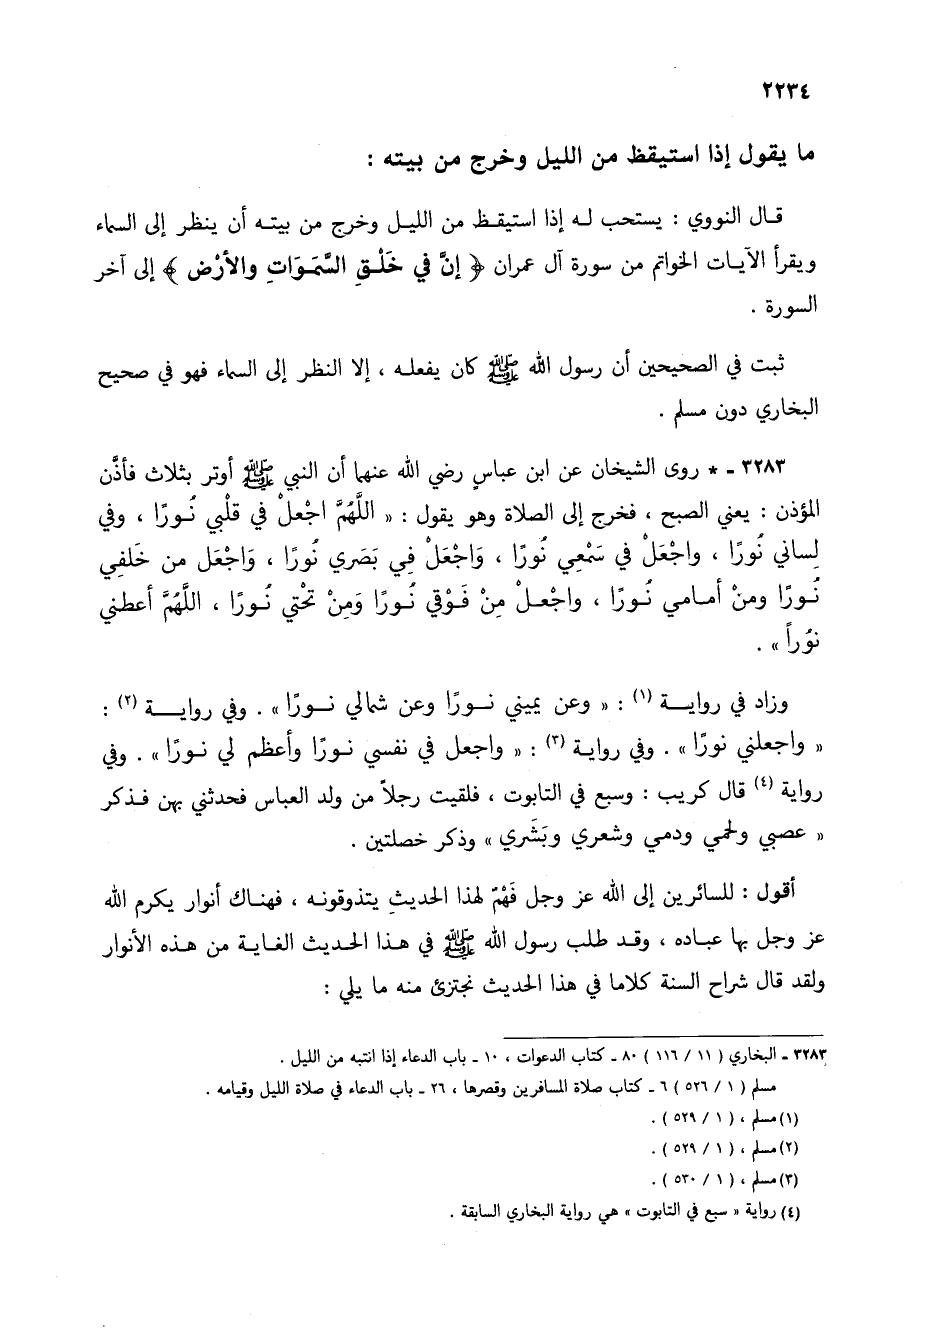 ٢٢٣٤
ما يقول إذا استيقظ من الليل وخرج من بيته :
قال النووي : يستحب له إذا استيقظ من الليل وخرج من بيته أن ينظر إلى السماء
ويقرأ الآيات الخواتم من سورة آل عمران ﴿ إنَّ في خَلْقِ السَّمَوَاتِ والأرْضِ ﴾ إلى آخر
السورة .
ثبت في الصحيحين أن رسول الله ﷺ كان يفعله ، إلا النظر إلى السماء فهو في صحيح
البخاري دون مسلم .
٣٢٨٣ - * روى الشيخان عن ابن عباسٍ رضي الله عنهما أن النبي ﷺ أوتر بثلاث فأذَّن
المؤذن : يعني الصبح ، فخرج إلى الصلاة وهو يقول : « اللَّهُمَّ اجْعلْ في قلْبي نُورًا ، وفي
لِساني نُورًا ، واجْعَلْ في سَمْعِي نُورًا ، وَاجْعَلْ فِي بَصَري نُورًا ، وَاجْعَل من خَلفِي
نُورًا ومنْ أمامي نُورًا ، واجْعلْ مِنْ فَوْقي نُورًا وَمِنْ تحْتي نُورًا ، اللَّهُمَّ أعطني
نوُراً » .
وزاد في رواية (١) : « وعن يميني نورًا وعن شمالي نورًا » . وفي رواية (٢) :
« واجعلني نورًا » . وفي رواية (٣) : « واجعل في نفسي نورًا وأعظم لي نورًا » . وفي
رواية (٤) قال كريب : وسبع في التابوت ، فلقيت رجلاً من ولد العباس فحدثني بهن فذكر
« عصبي ولحمي ودمي وشعري وبَشَري » وذكر خصلتين .
أقول : للسائرين إلى الله عز وجل فَهْمٌ لهذا الحديثِ يتذوقونه ، فهناك أنوار يكرم الله
عز وجل بها عباده ، وقد طلب رسول الله ﷺ في هذا الحديث الغاية من هذه الأنوار
ولقد قال شراح السنة كلاما في هذا الحديث نجتزئ منه ما يلي :
٣٢٨٣ - البخاري ( ١١ / ١١٦ ) ٨٠ - كتاب الدعوات ، ١٠ - باب الدعاء إذا انتبه من الليل .
مسلم ( ١ / ٥٢٦ ) ٦ - كتاب صلاة المسافرين وقصرها ، ٢٦ - باب الدعاء في صلاة الليل وقيامه .
(١) مسلم ، ( ١ / ٥٢٩ ) .
(٢) مسلم ، ( ١ / ٥٢٩ ) .
(٣) مسلم ، ( ١ / ٥٣٠ ) .
(٤) رواية « سبع في التابوت » هي رواية البخاري السابقة .